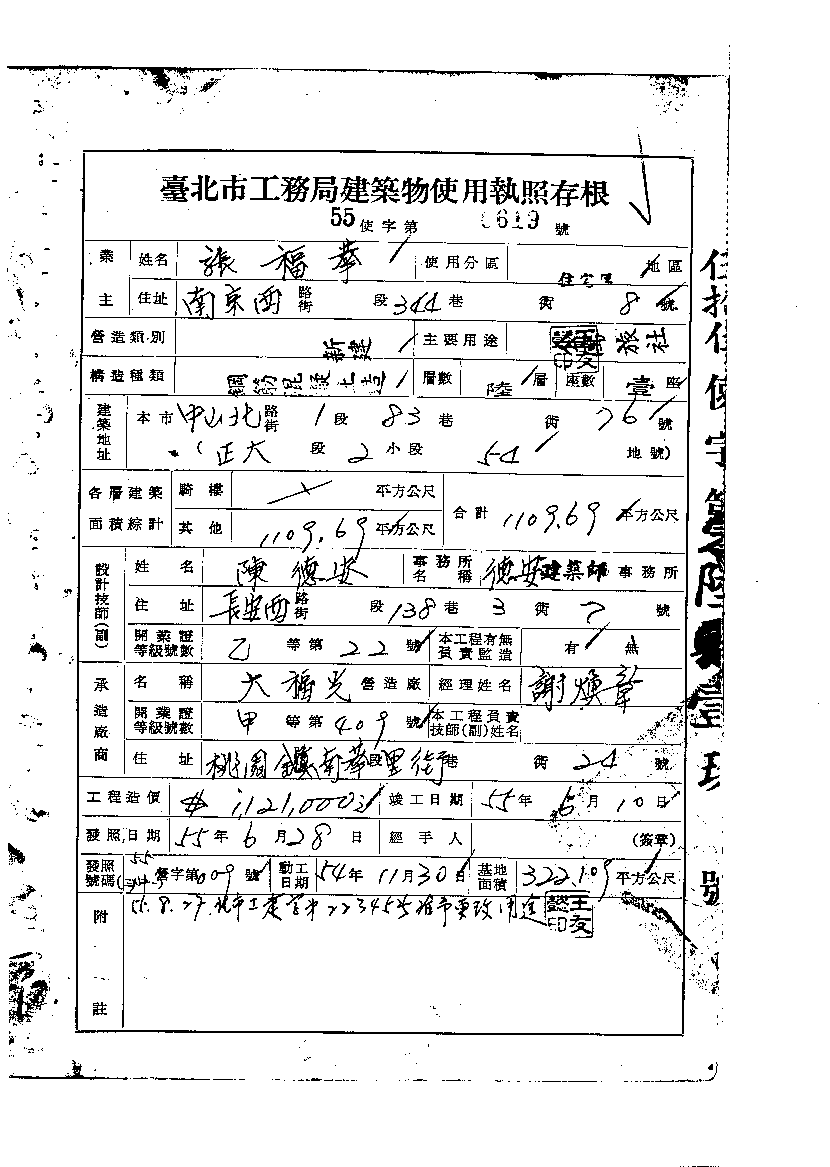 臺北市工務局建築物使用執照存根
55使字第0619號
業主 姓名 張福華 使用分區 住宅區 地區
住址 南京西路街 段344巷 街 8號
營造類別 新建 主要用途 旅社
構造種類 鋼筋混凝土造 層數 陸層 座數 壹座
建築地址 本市中山北路街 1段 83巷 街 26號
(正大段 2小段 54 地號)
各層建築面積綜計 騎樓 平方公尺 合計 1109.69平方公尺
其他 1109.69平方公尺
設計技師(副) 姓名 陳德安 事務所名稱 德安建築師事務所
住址 長安西路街 段138巷 3街 7號
開業證等級號數 乙等第22號 本工程有無負責監造 有 無
承造廠商 名稱 大福光營造廠 經理姓名 謝煥章
開業證等級號數 甲等第409號 本工程負責技師(副)姓名
住址 桃園鎮南華里街 段巷 街 24號
工程造價 1,121,000 竣工日期 55年6月10日
發照日期 55年6月28日 經手人 (簽章)
發照號碼 55 營字第009號 動工日期 54年11月30日 基地面積 322.09平方公尺
附註 55.8.27.北市工建字第22345號 更改用途
使字第陸壹玖號